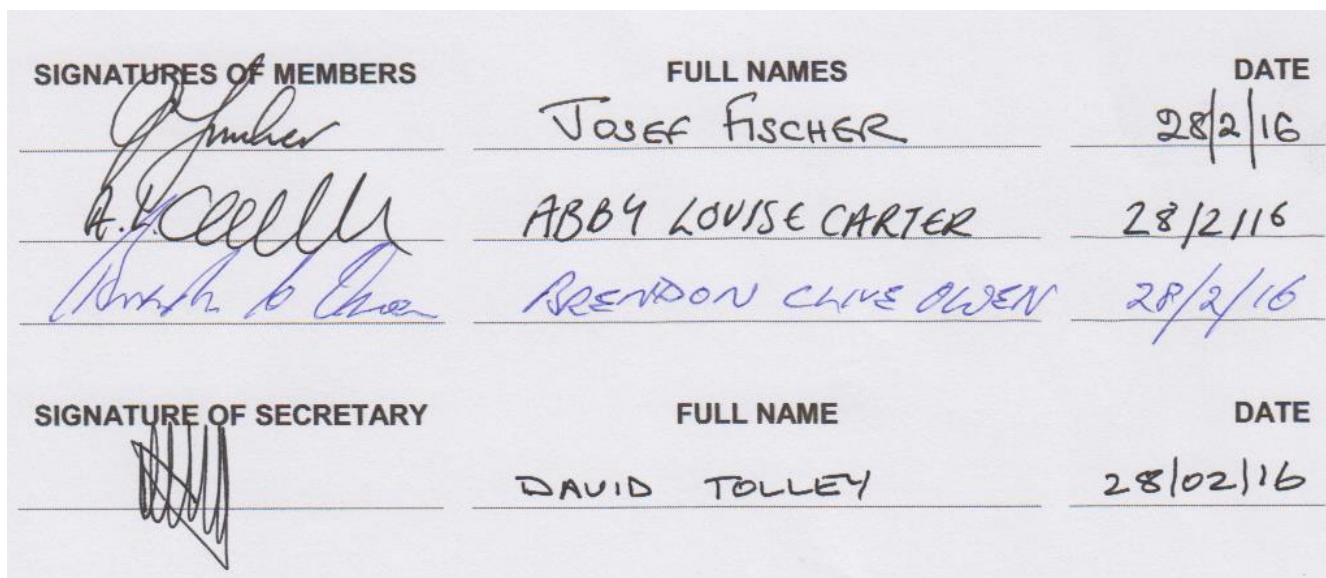 SIGNATURES OF MEMBERS FULL NAMES DATE
JOSEF FISCHER 28/2/16
A.L. ABBY LOUISE CARTER 28/2/16
BRENDON CLIVE OWEN 28/2/16
SIGNATURE OF SECRETARY FULL NAME DATE
DAVID TOLLEY 28/02/16